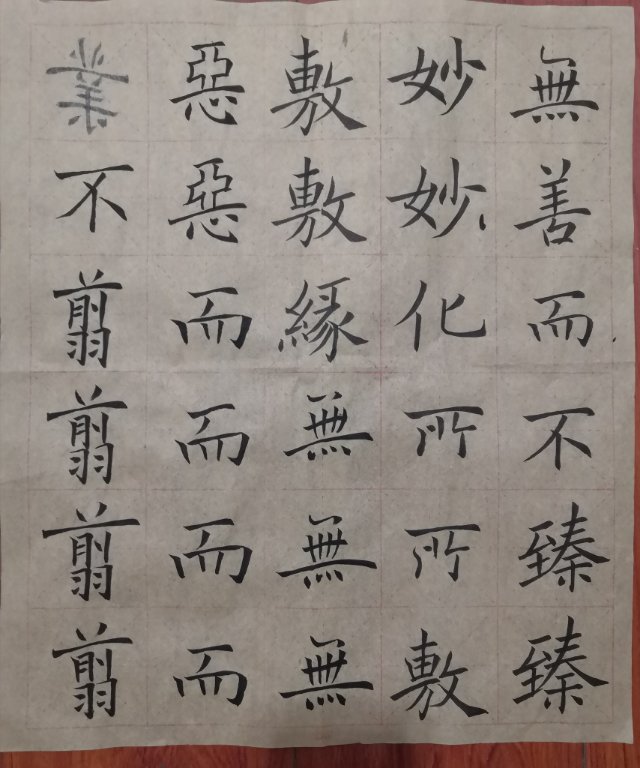 無善而不臻臻
妙妙化所所敷
敷敷緣無無無
惡惡而而而而
業不翦翦翦翦